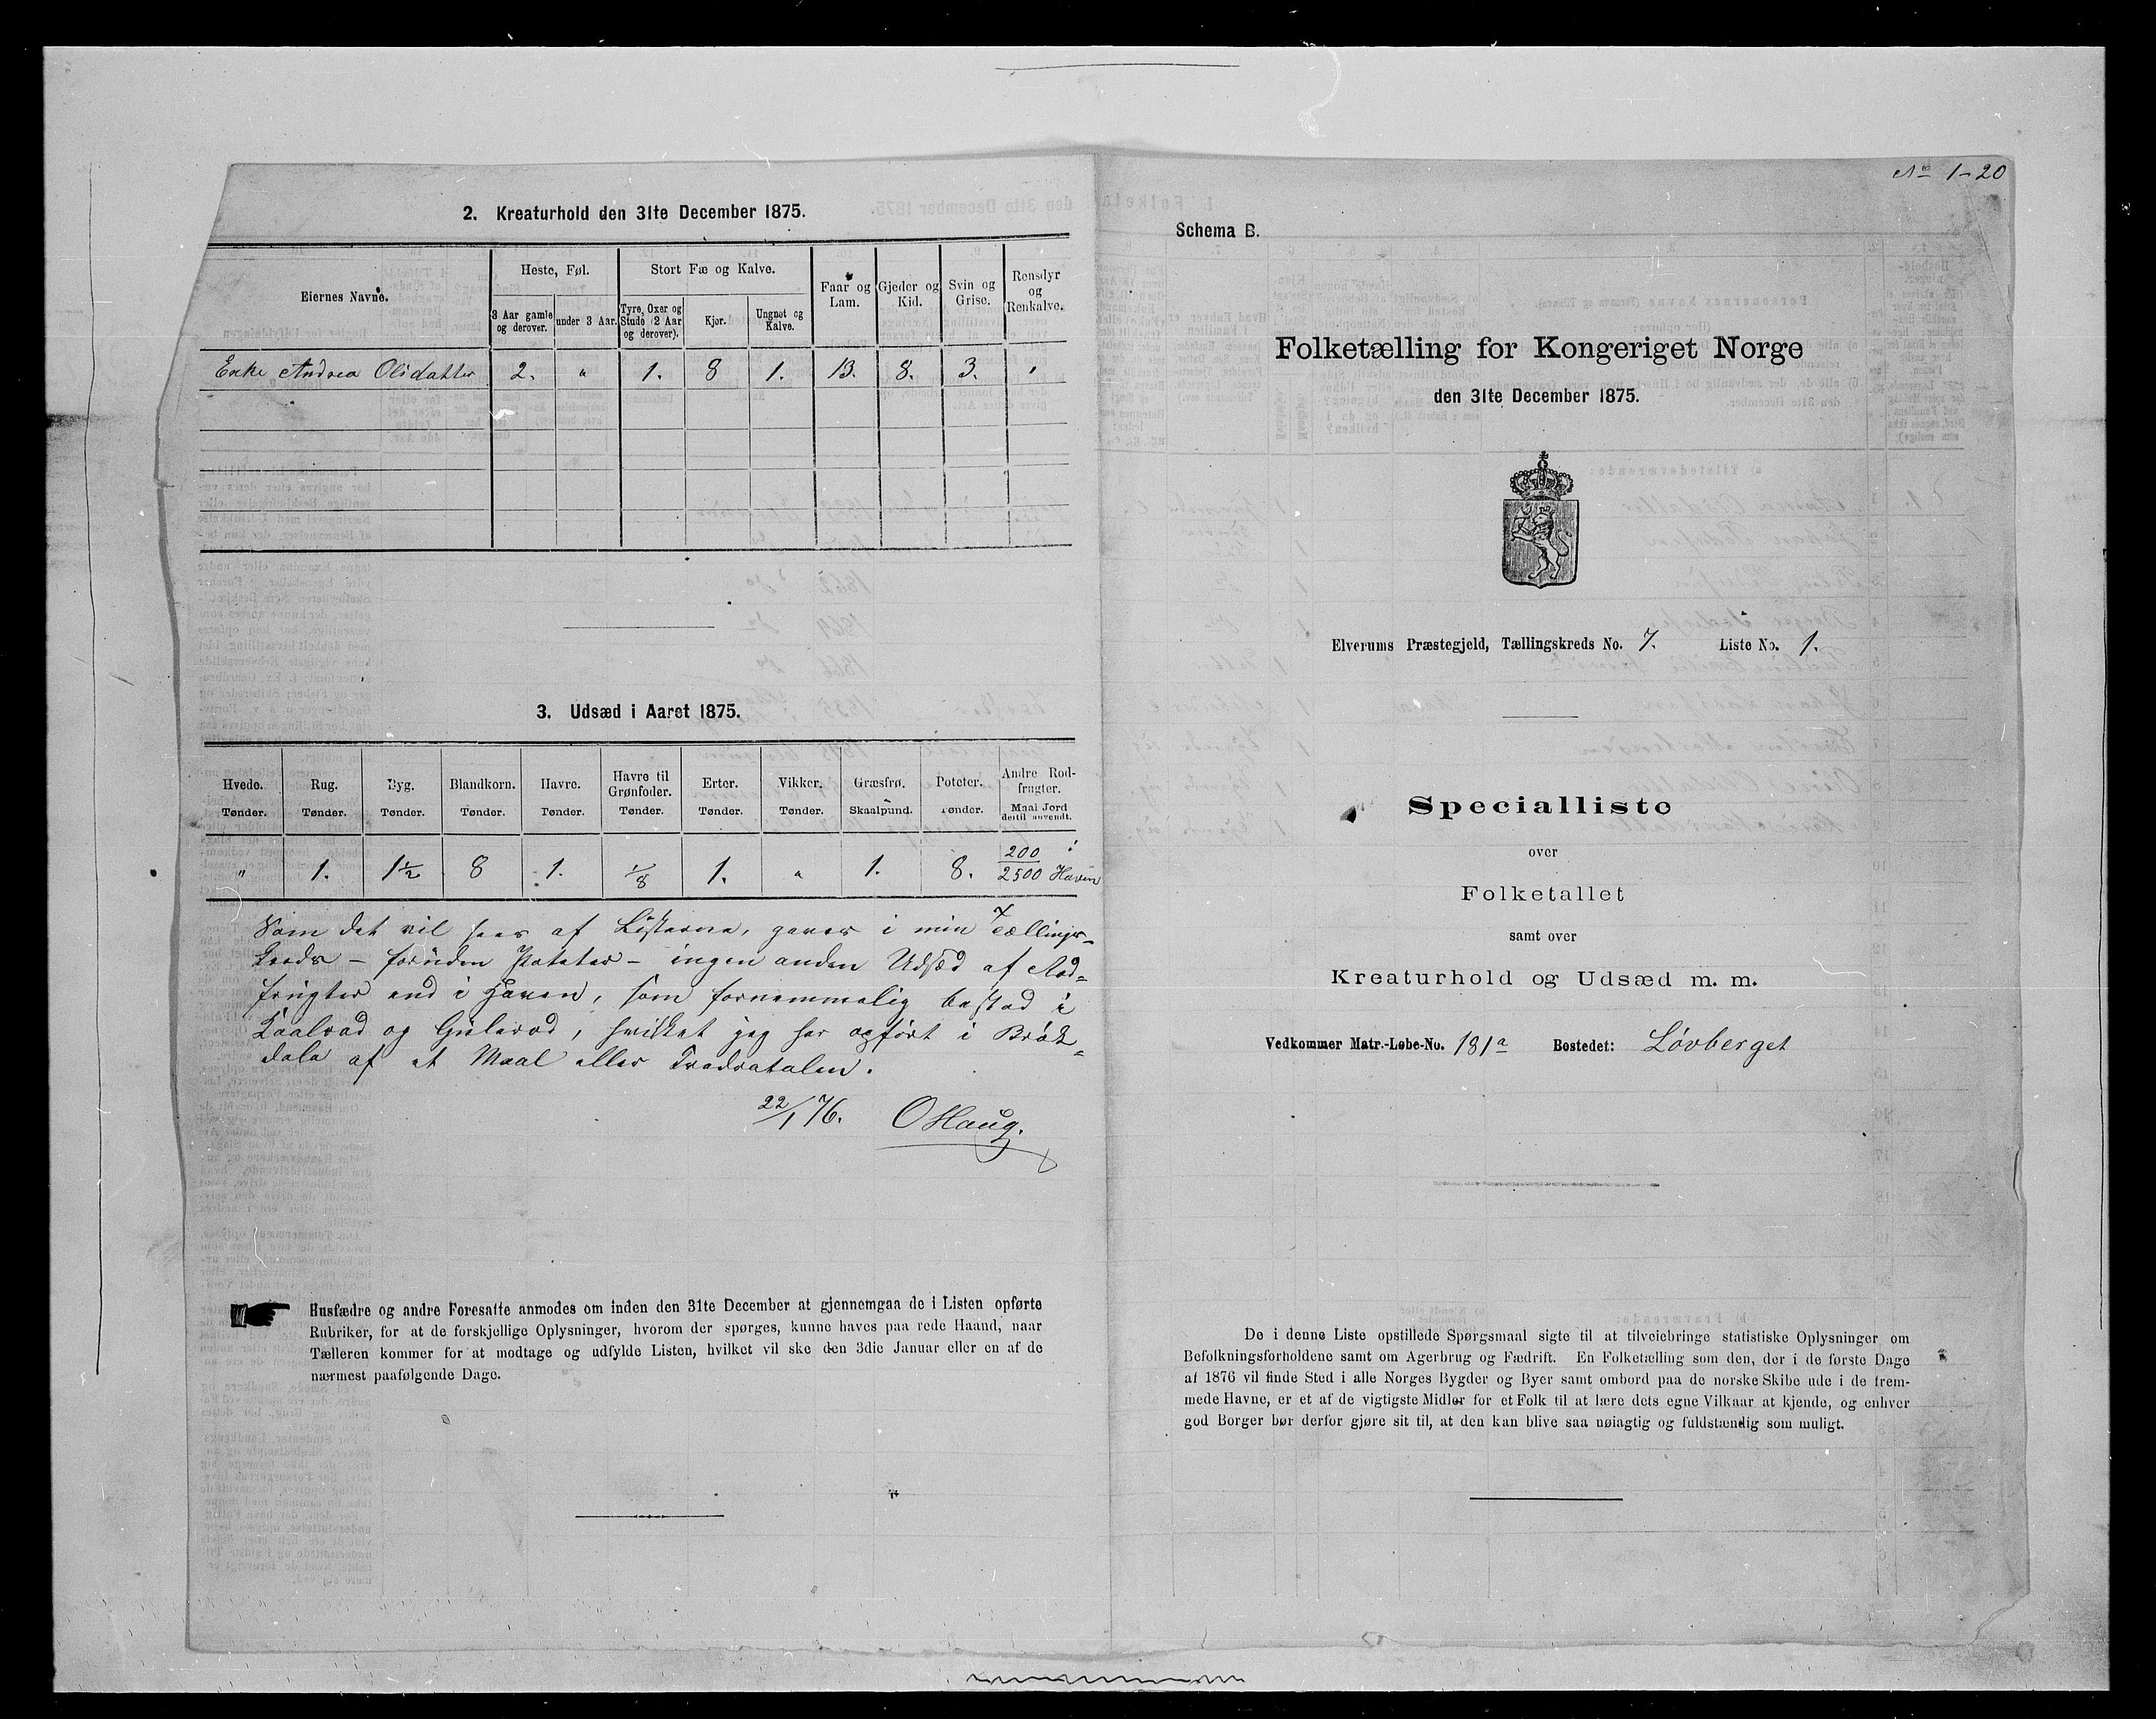 2. Kreaturhold den 31te December 1875.
Eiernes Navne.
Heste, Føl.
Stort Fæ og Kalve.
Faar og Lam.
Gjeder og Kid.
Svin og Grise.
Rensdyr og Renkalve.
3 Aar gamle og derover.
under 3 Aar.
Tyre, Oxer og Stude (2 Aar og derover).
Kjør.
Ungnøt og Kalve.
Enke Andrea Olsdatter 2. " 1. 8 1. 13. 8. 3. "
3. Udsæd i Aaret 1875.
Hvede. Rug. Byg. Blandkorn. Havre. Havre til Grønfoder. Erter. Vikker. Græsfrø. Poteter. Andre Rodfrugter.
Tønder. Tønder. Tønder. Tønder. Tønder. Tønder. Tønder. Tønder. Skaalpund. Tønder. Maal Jord dertil anvendt.
" 1. 1½ 8 1. 1/8 1. " 1. 8. 200/2500 i Haven
Som det vil sees af Listerne, gaves i min Tællings-
kreds - foruden Poteter - ingen anden Udsæd af Rod-
frugter end i Haven, som fornemmelig bestod i
Kaalrod og Gulerod, hvilket jeg har opført i Brøk-
dele af et Maal eller Kvadratalen.
22/1 76. OHaug.
Husfædre og andre Foresatte anmodes om inden den 31te December at gjennemgaa de i Listen opførte
Rubriker, for at de forskjellige Oplysninger, hvorom der spørges, kunne haves paa rede Haand, naar
Tælleren kommer for at modtage og udfylde Listen, hvilket vil ske den 3die Januar eller en af de
nærmest paafølgende Dage.
No 1-20
Schema B.
Folketælling for Kongeriget Norge
den 31te December 1875.
Elverums Præstegjeld, Tællingskreds No. 7. Liste No. 1.
Specialliste
over
Folketallet
samt over
Kreaturhold og Udsæd m. m.
Vedkommer Matr.-Løbe-No. 181a Bostedet: Løvberget
De i denne Liste opstillede Spørgsmaal sigte til at tilveiebringe statistiske Oplysninger om
Befolkningsforholdene samt om Agerbrug og Fædrift. En Folketælling som den, der i de første Dage
af 1876 vil finde Sted i alle Norges Bygder og Byer samt ombord paa de norske Skibe ude i de frem-
mede Havne, er et af de vigtigste Midler for et Folk til at lære dets egne Vilkaar at kjende, og enhver
god Borger bør derfor gjøre sit til, at den kan blive saa nøiagtig og fuldstændig som muligt.